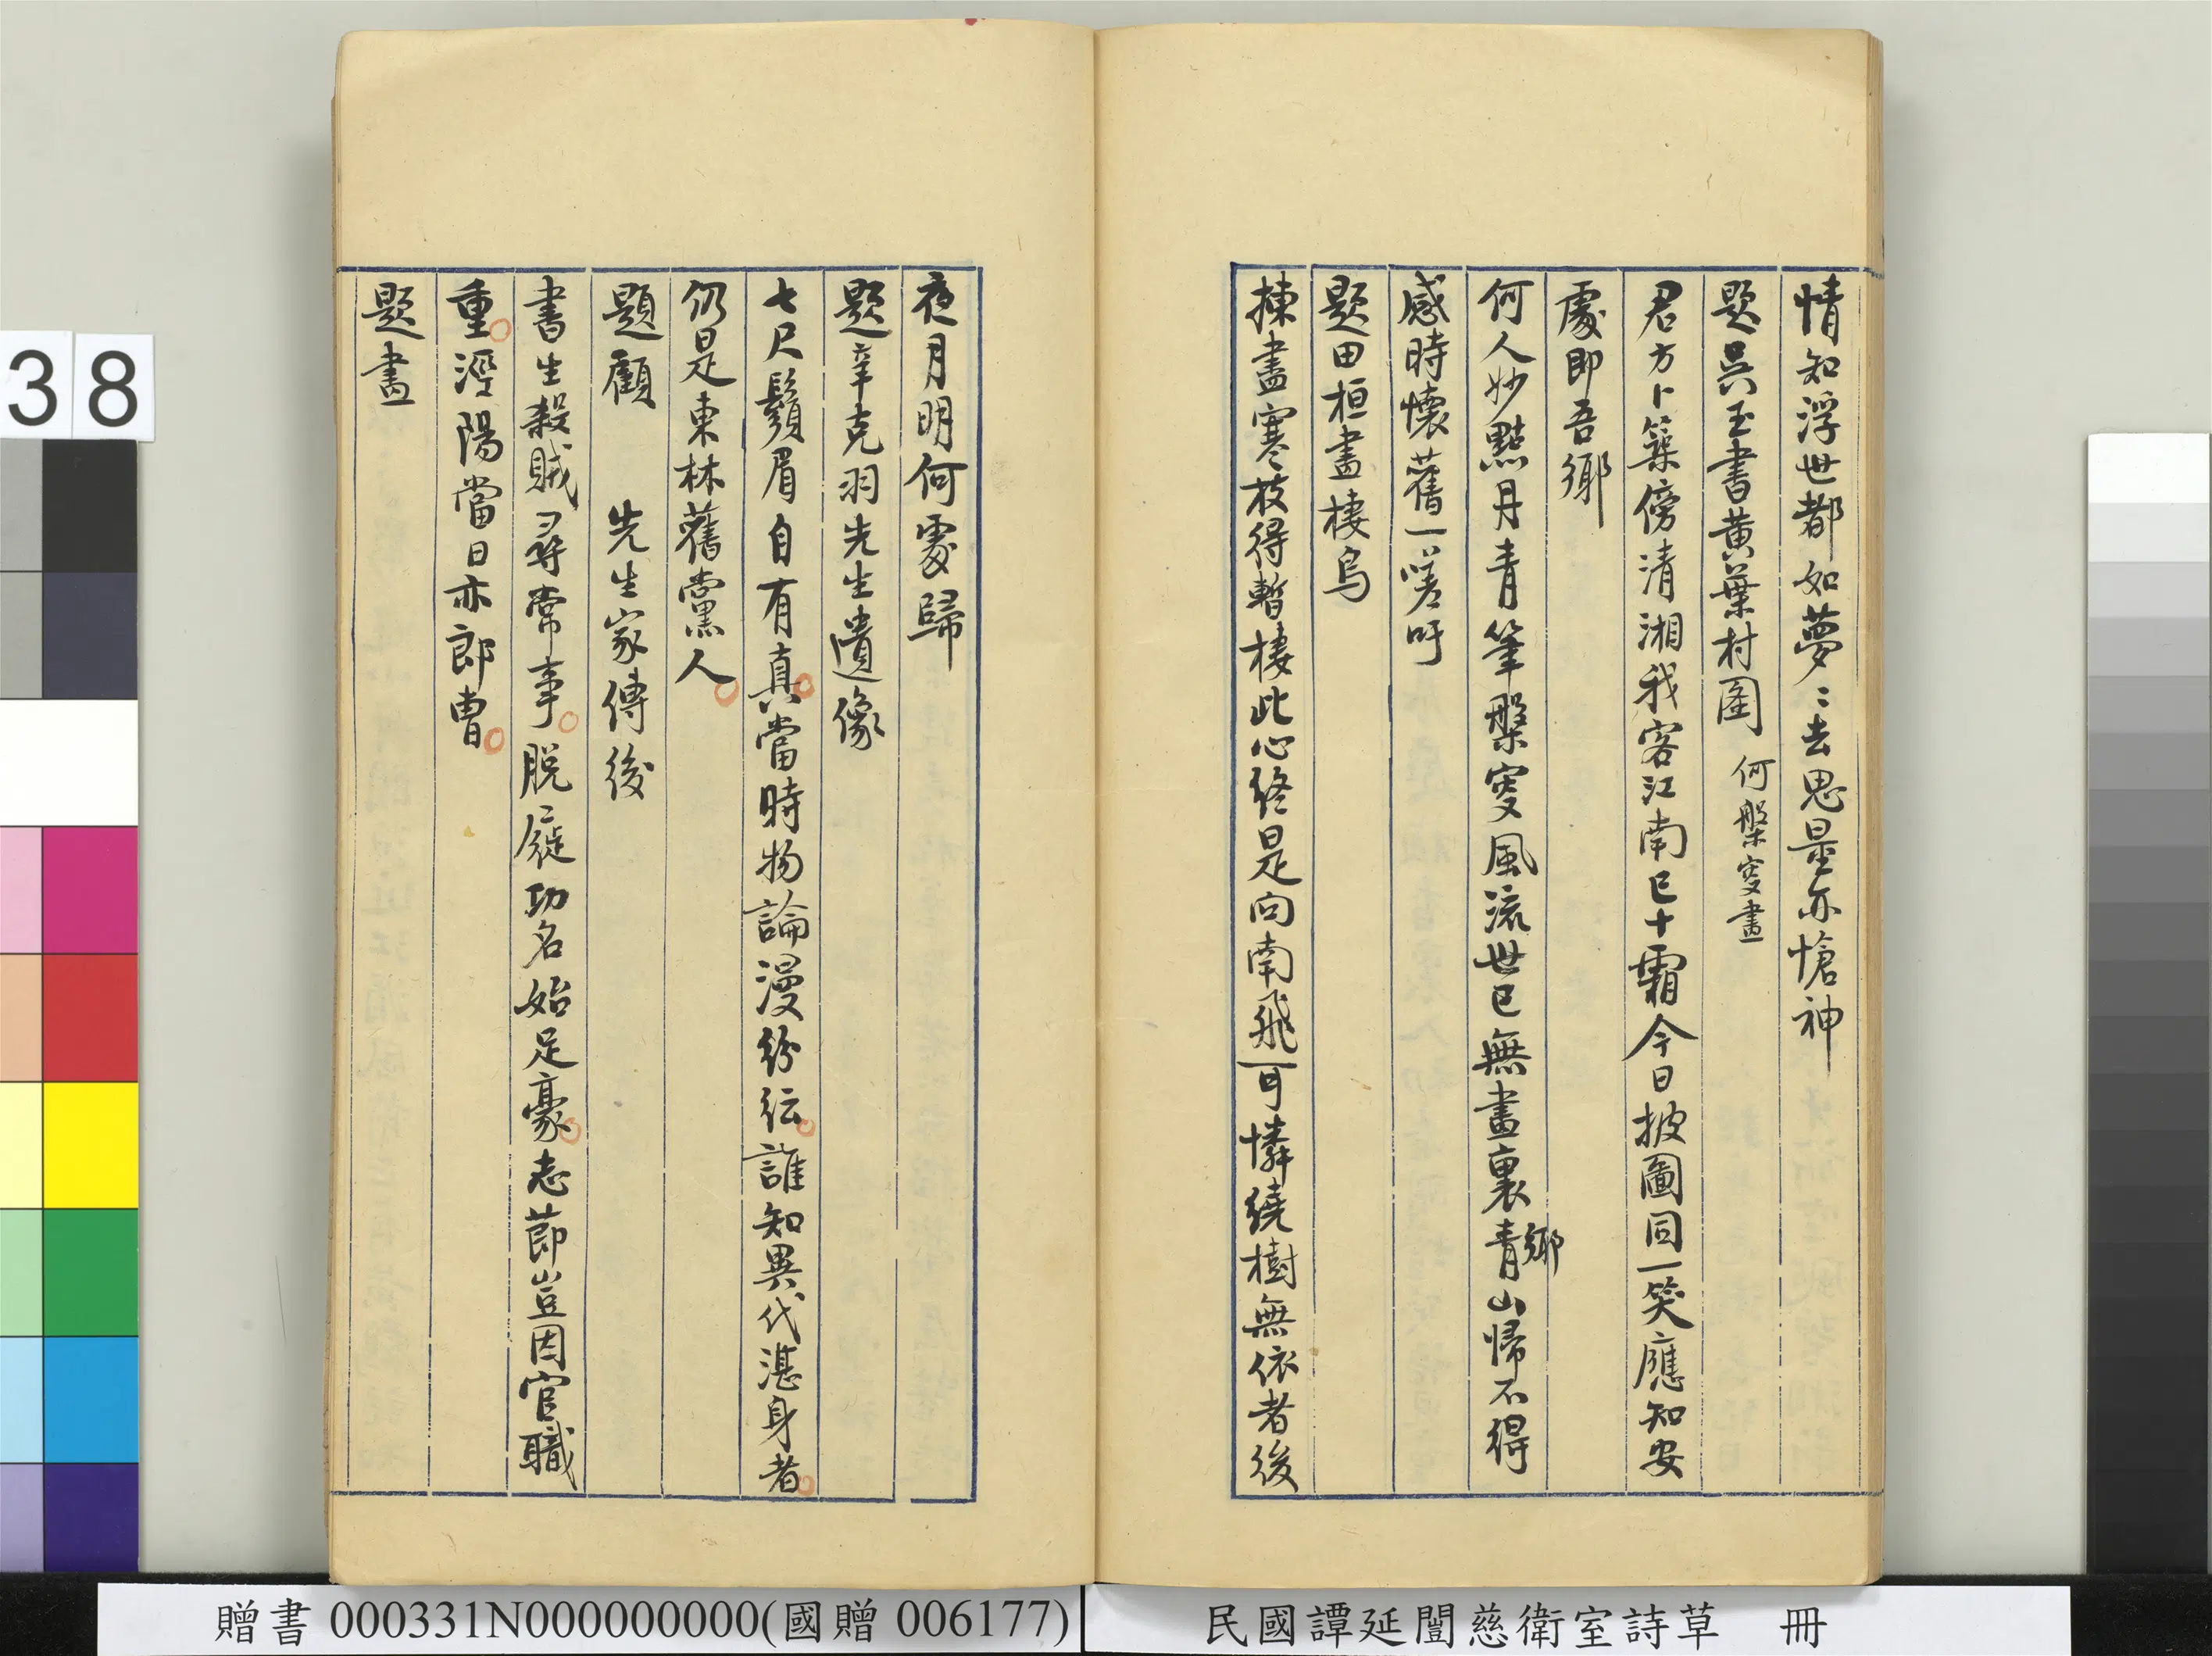 情知浮世都如夢〻去思量亦愴神
題吳玉書黃葉村圖 何槃叟畫
君方卜築傍清湘我客江南已十霜今日披圖同一笑應知安
處即吾鄉
何人妙點丹青筆槃叟風流世已無畫裏青山歸不得
鄉
感時懷舊一嗟吁
題田桓畫棲烏
揀盡寒枝得暫棲此心終是向南飛可憐繞樹無依者後
夜月明何處歸
題辛克羽先生遺像
七尺鬚眉自有真當時物論漫紛紜誰知異代湛身者
仍是東林舊黨人
題顧 先生家傳後
書生殺賊尋常事脫屣功名始足豪志節豈因官職
重涇陽當日亦郎曹
題畫
38
贈書 000331N000000000(國贈 006177)
民國譚延闓慈衛室詩草 冊